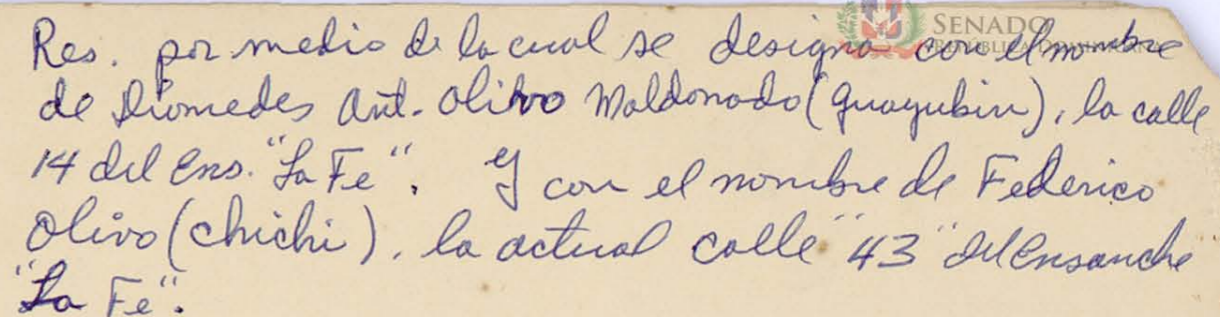 SENADO
REPÚBLICA DOMINICANA
Res. por medio de la cual se designa con el nombre
de Diomedes Ant. Olivo Maldonado (guayubin), la calle
14 del Ens. "La Fe". Y con el nombre de Federico
Olivo (chichi), la actual calle "43" del Ensanche
"La Fe".